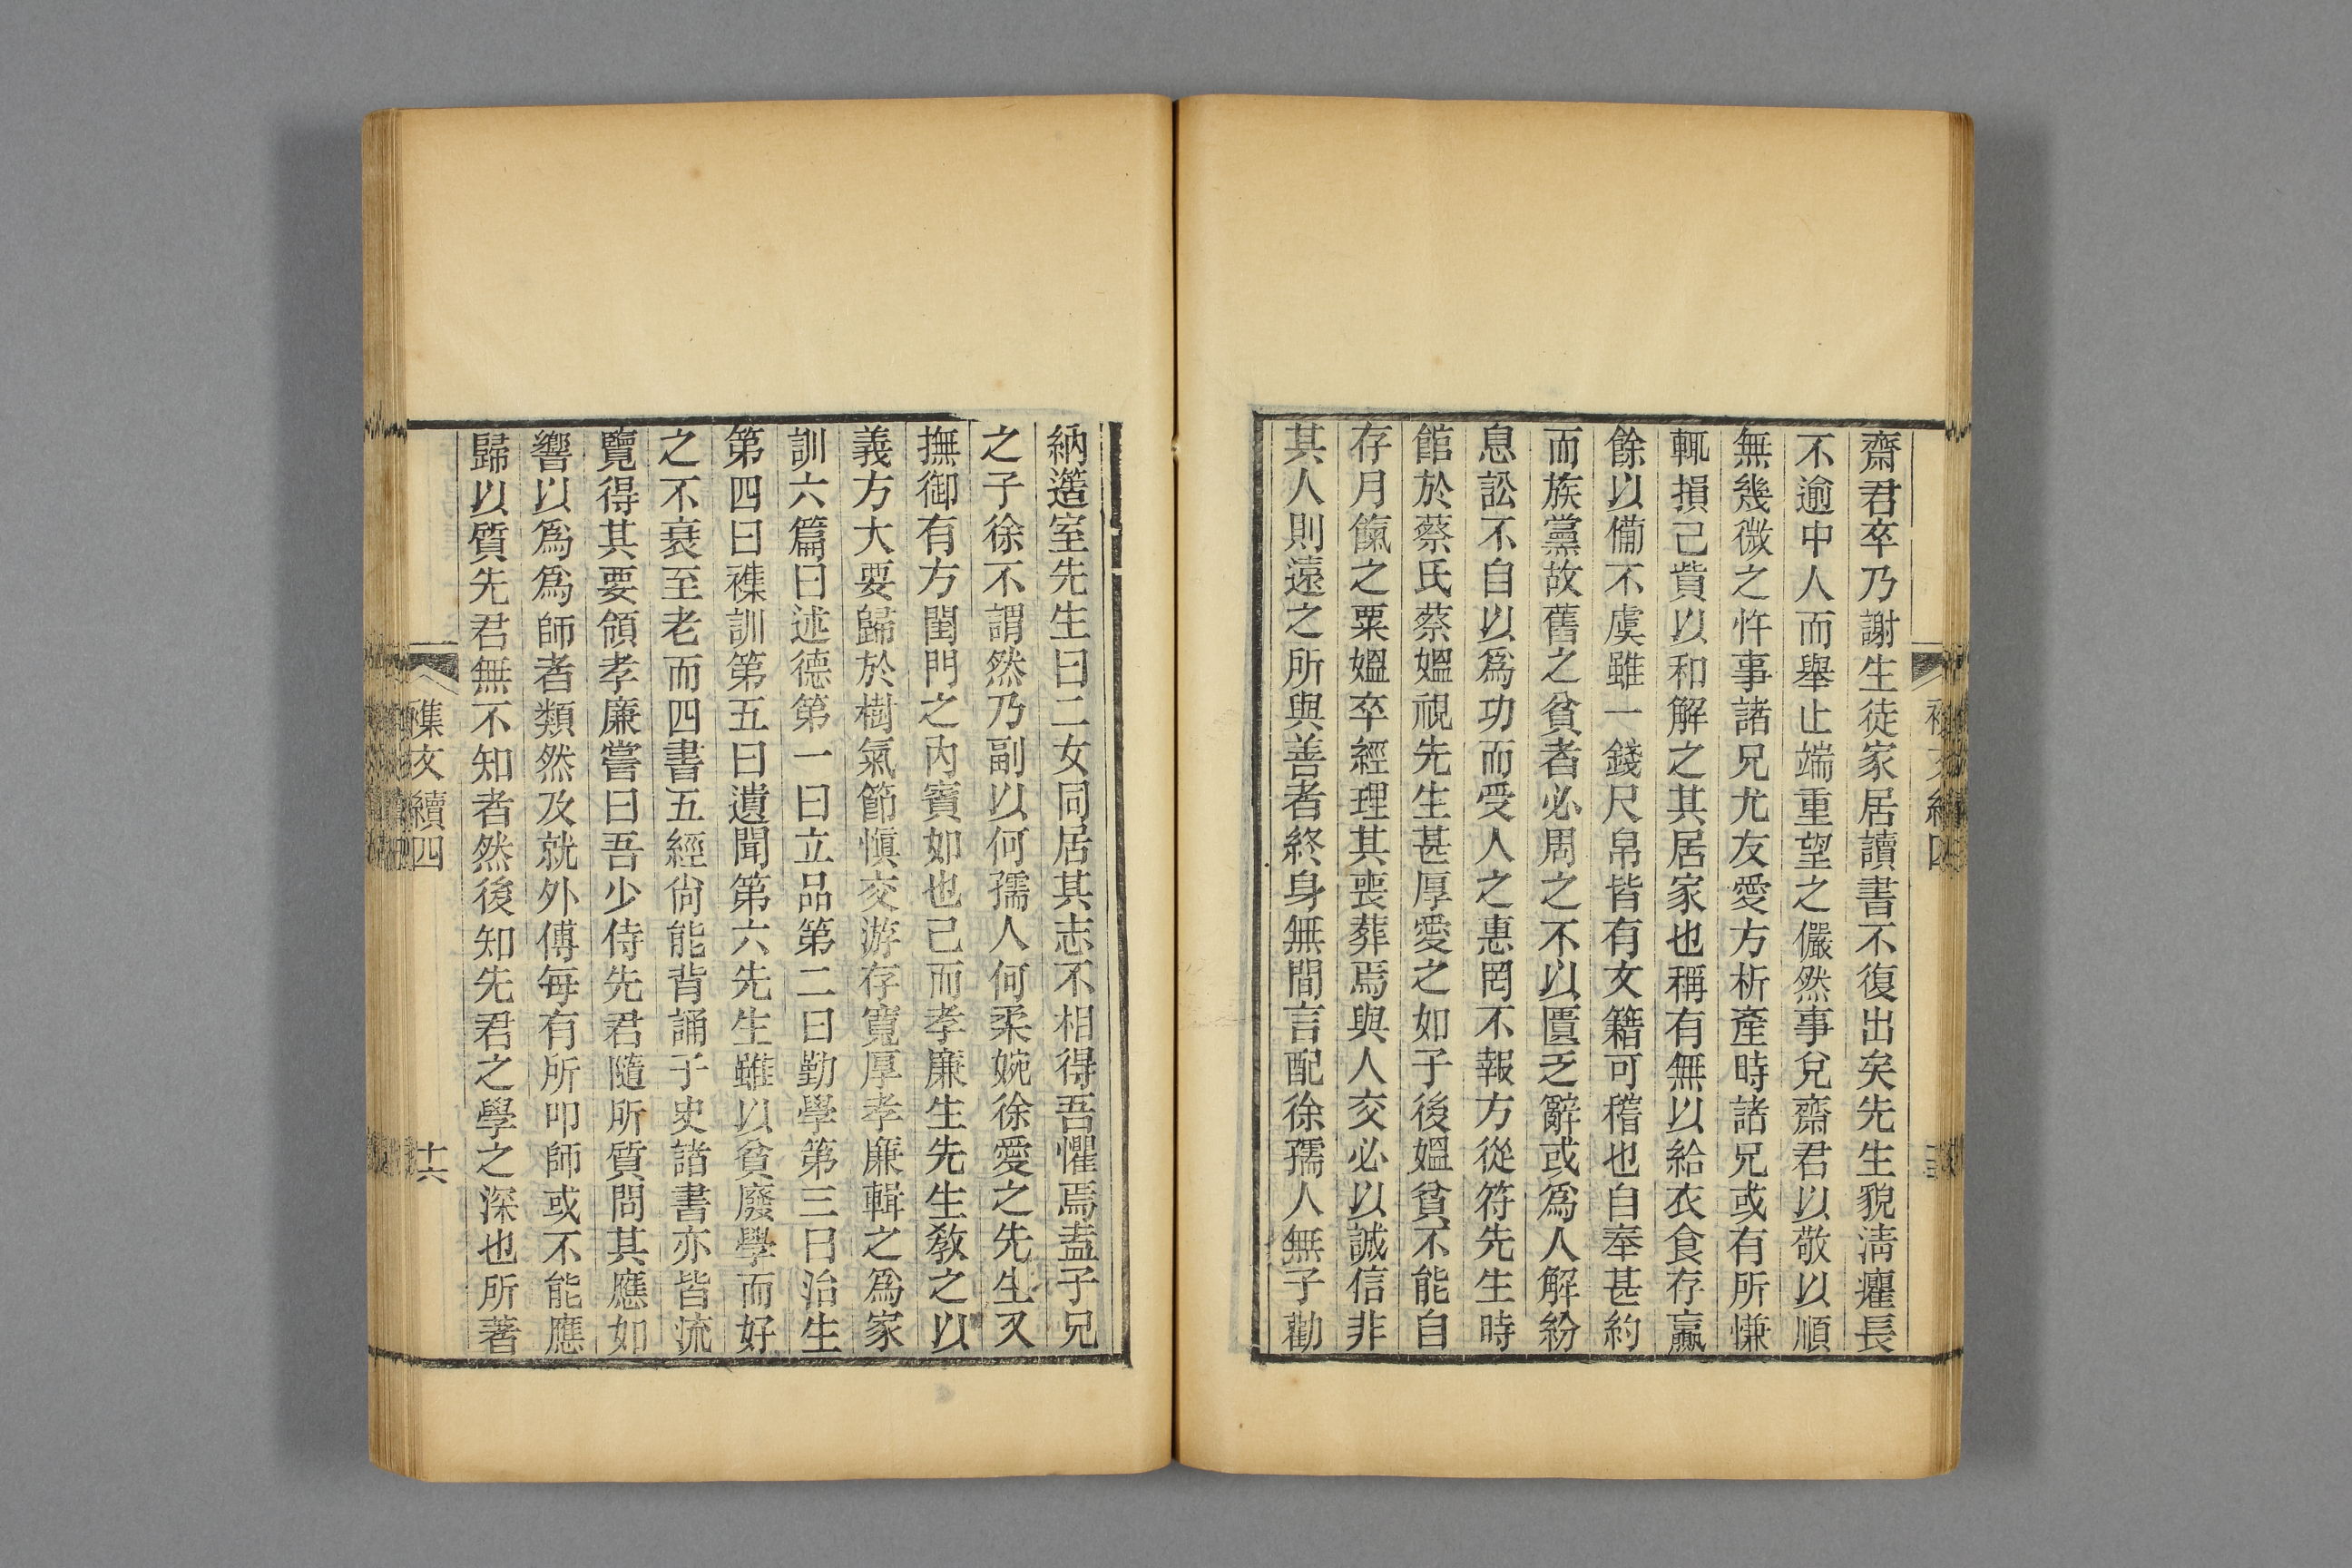 齋君卒乃謝生徒家居讀書不復出矣先生貌淸癯長
不逾中人而舉止端重望之儼然事兌齋君以敬以順
無幾微之忤事諸兄尤友愛方析產時諸兄或有所慊
輒損己貲以和解之其居家也稱有無以給衣食存贏
餘以備不虞雖一錢尺帛皆有文籍可稽也自奉甚約
而族黨故舊之貧者必周之不以匱乏辭或爲人解紛
息訟不自以爲功而受人之惠罔不報方從符先生時
館於蔡氏蔡媼視先生甚厚愛之如子後媼貧不能自
存月餼之粟媼卒經理其喪葬焉與人交必以誠信非
其人則遠之所與善者終身無間言配徐孺人無子勸
納簉室先生曰二女同居其志不相得吾懼焉盍子兄
之子徐不謂然乃副以何孺人何柔婉徐愛之先生又
撫御有方閨門之內賓如也已而孝廉生先生敎之以
義方大要歸於樹氣節愼交游存寬厚孝廉輯之爲家
訓六篇曰述德第一曰立品第二曰勤學第三曰治生
第四曰襍訓第五曰遺聞第六先生雖以貧廢學而好
之不衰至老而四書五經尙能背誦子史諸書亦皆流
覽得其要領孝廉嘗曰吾少侍先君隨所質問其應如
響以爲爲師者類然及就外傅每有所叩師或不能應
歸以質先君無不知者然後知先君之學之深也所著
襍文續四
十六